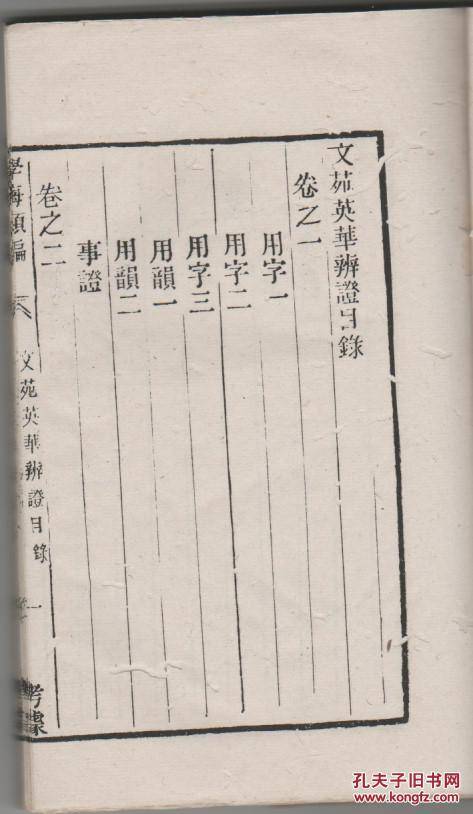 文苑英華辨證目錄
卷之一
用字一
用字二
用字三
用韻一
用韻二
事證
卷之二
學海類編
文苑英華辨證目錄
一
考據
孔夫子旧书网
www.kongfz.com